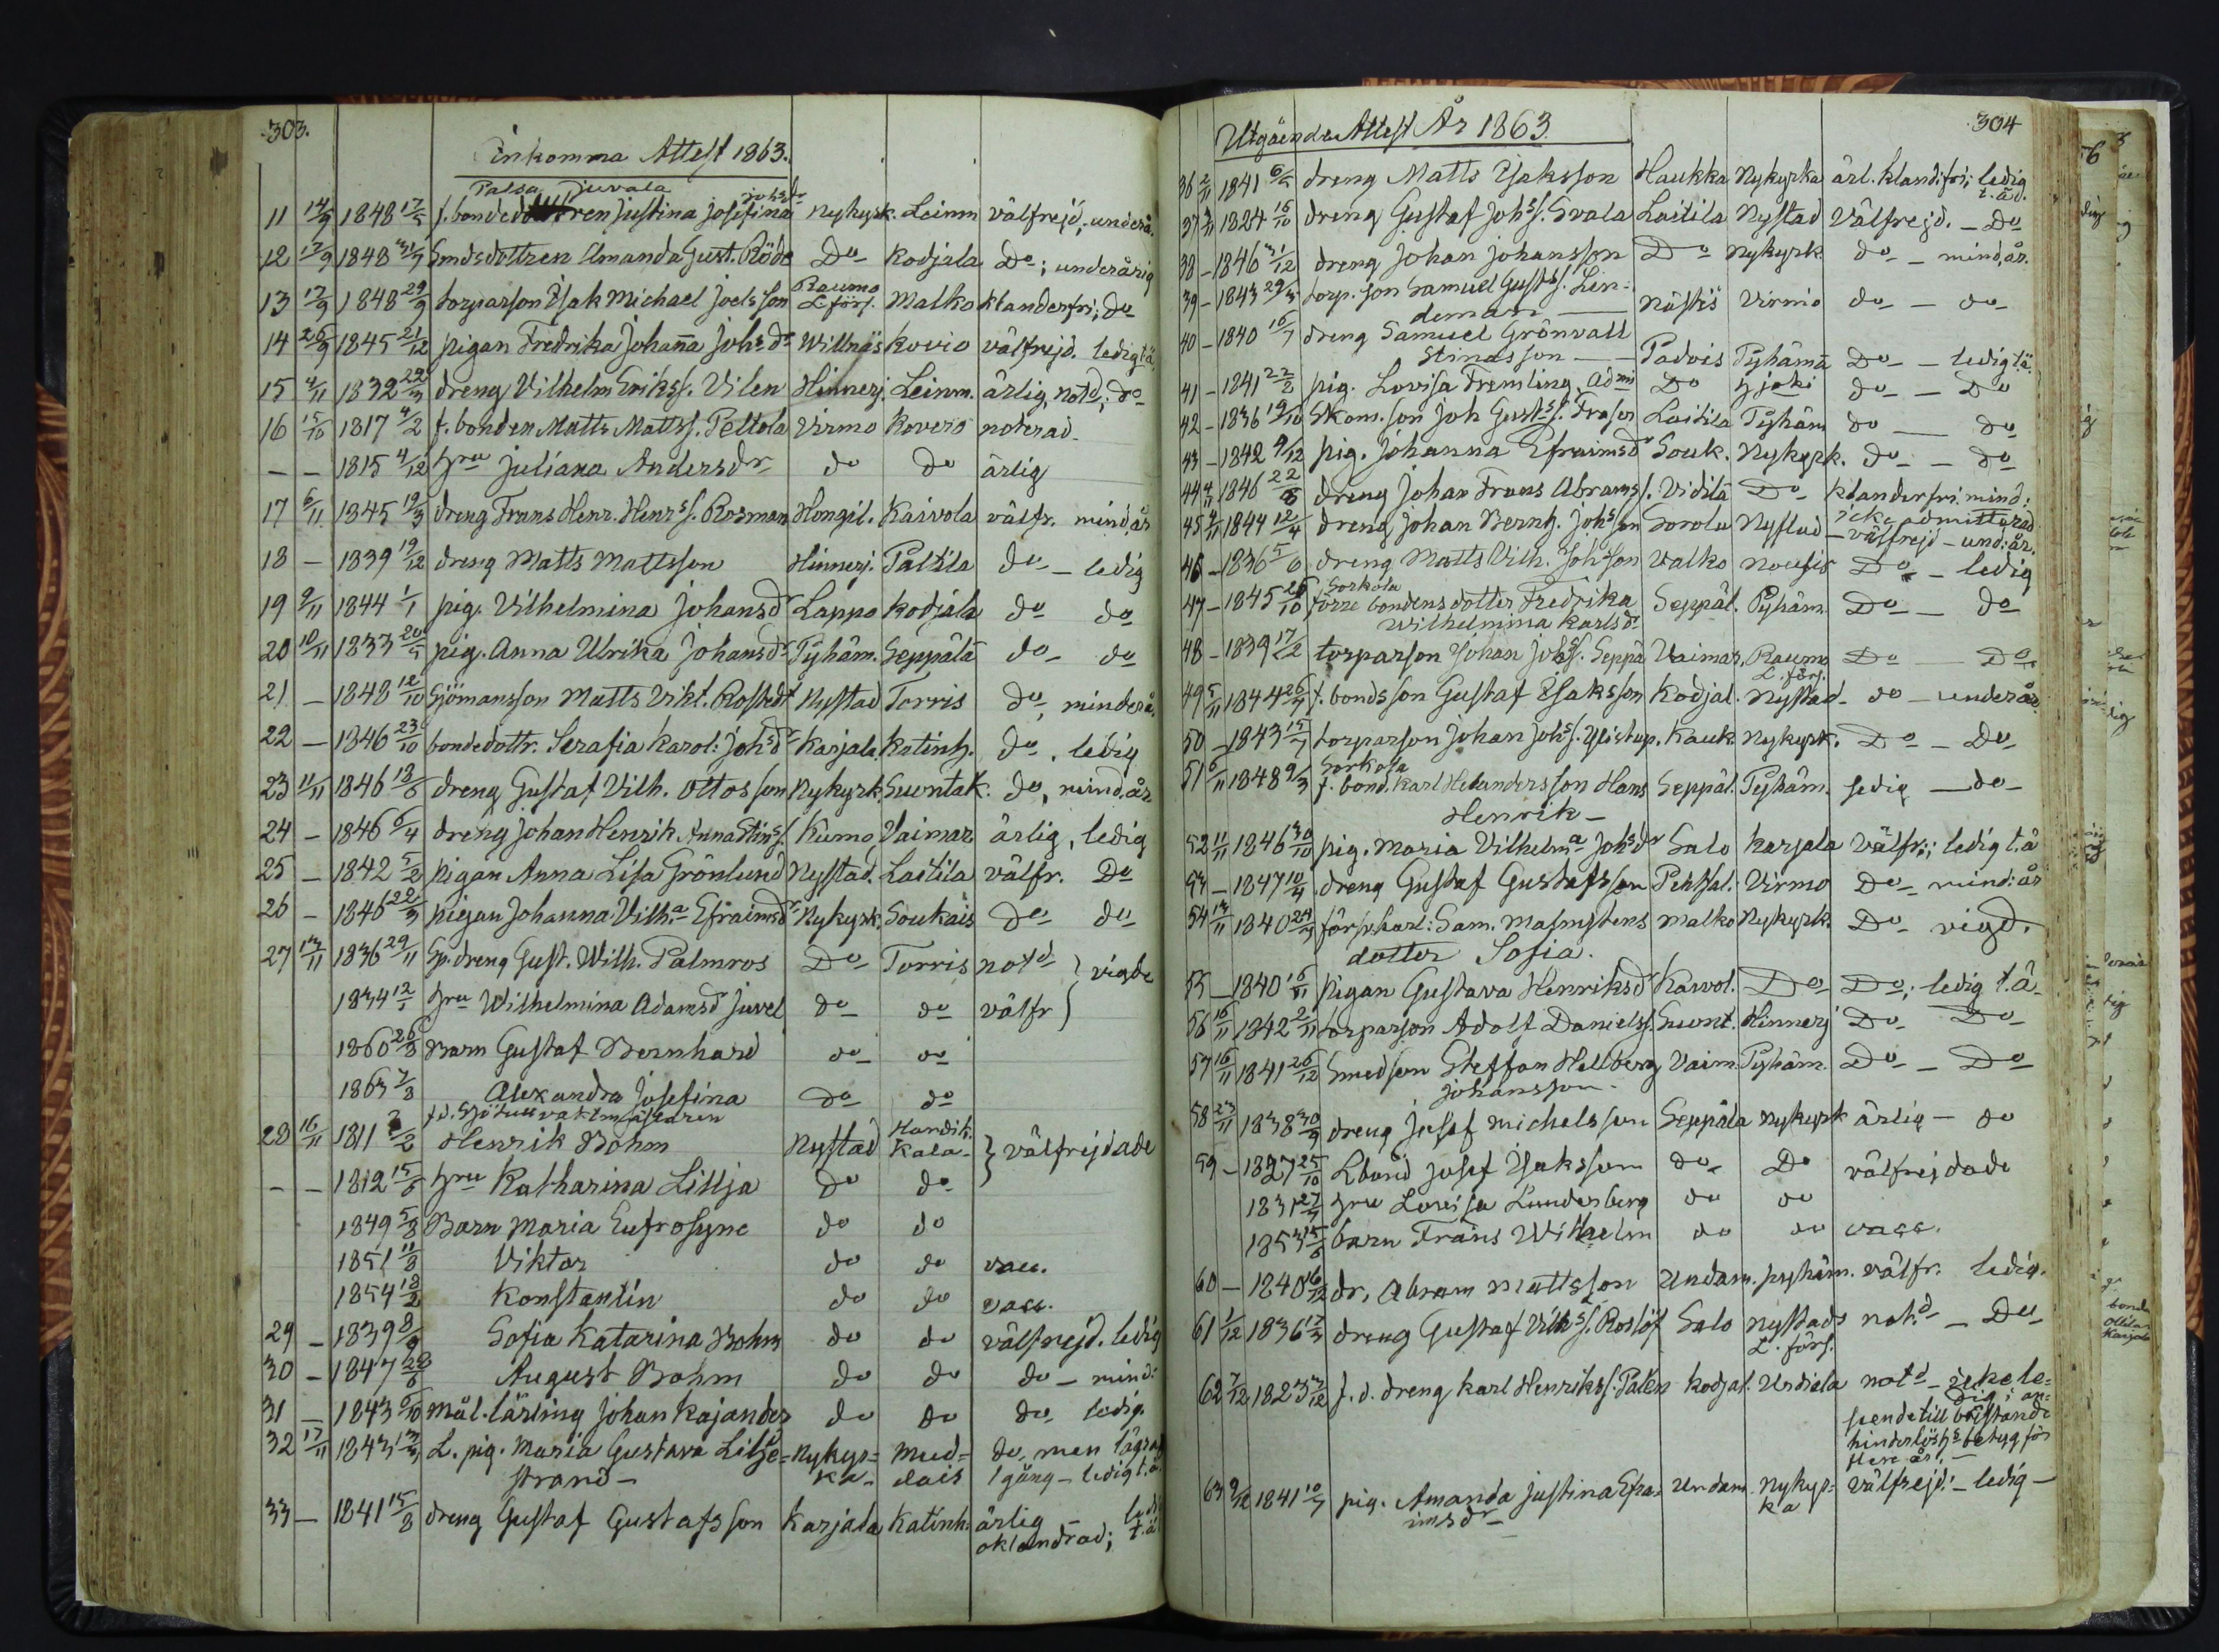 303.
Inkomma Attest 1863.
Palsa Juvala Johsdr
11 14/9 1848 17/5 f. bonded Justina Josefina Nykyrk. Leinm välfrejd, underå.
12 17/9 1848 31/7 Smdsdottren Amanda Gust. Röde Do Kodjala Do; underårig
Raumo
13 17/9 1848 29/9 torparson Isak Michael Joelsson L. förs. Malko klanderfri; do
14 26/9 1845 21/12 pigan Fredrika Johanna Johsdr Willnäs Kovio välfrejd. ledig tä
15 4/11 1832 22/3 dreng Vilhelm Erikss. Vilen Hinnerj. Leinm. ärlig, notd; do
16 15/10 1817 4/2 f. bonden Matts Mattss. Peltola Virmo Kovero noterad
- - 1815 4/12 hru Juliana Andersdr do do ärlig
17 6/11 1845 19/3 dreng Frans Henr. Henrss. Rosman Hongil. Kaivola välfr. mindår
18 - 1839 19/12 dreng Matts Mattsson Hinnerj. Paltila do - ledig
19 9/11 1844 1/1 pig. Vilhelmina Johansdr Lappo Kodjala do do
20 10/11 1833 20/5 pig. Anna Ulrika Johansdr Pyhäm. Seppälä do do
21 - 1848 12/10 Sjömansson Matts Vikt. Rostedt Nystad Torris do, minderå.
22 - 1846 23/10 bondedottr. Serafia Karol: Johsdr Karjala Katinh. do, ledig
23 11/11 1846 18/6 dreng Gustaf Vilh. Ottosson Nykyrk. Suontak. do, mind.år
24 - 1846 6/4 dreng Johan Henrik Anna Stinss. Kumo, Vaimar ärlig, ledig
25 - 1842 5/2 pigan Anna Lisa Grönlund Nystad. Laitila välfr. Do
26 - 1846 22/3 pigan Johanna Vilha Efraimsdr Nykyrk. Soukais Do do
27 13/11 1836 29/11 Sp. dreng Gust. Wilh. Palmros Do Torris notd } vigde
1834 12/1 hru Wilhelmina Adamsd Juvel do do välfr }
1860 26/8 Barn Gustaf Bernhard do do
1863 7/8 Alexandra Josefina do do
f.d. Sjötullvaktmästaren
28 16/11 1811 2/2 Henrik Bohm Nystad Handik. Kala- } välfrejdade
- - 1812 15/6 hru Katharina Lillja do do
1849 5/8 Barn Maria Eufrosyne do do
1851 11/8 Viktor do do vacc.
1854 18/2 Konstantin do do vacc.
29 - 1839 8/9 Sofia Katarina Bohm do do välfrejd. ledig
30 - 1847 28/6 August Bohm do do do - mind:
31 - 1843 6/10 mål. lärling Johan Kajander do do do ledig.
32 17/11 1843 13/3 L. pig. Maria Gustava Lilje= Nykyr= Mud= do, men lägrad
strand - ka - dais 1 gång - ledig t.ä.
33 - 1841 15/8 dreng Gustaf Gustafsson Karjala Katinh. ärlig
oklandrad; t.ä
304
Utgående Attest År 1863
36 2/11 1841 6/5 dreng Matts Isaksson Haukka Nykyrka ärl. klandi fri; ledig
t. äd.
37 3/11 1824 16/10 dreng Gustaf Johss. Svala Laitila Nystad Välfrejd. - Do
38 - 1846 31/12 dreng Johan Johansson Do Nykyrk do - mind.år.
39 - 1843 29/3 torp. son Samuel Gustss. Lin-
deman - Nästis Virmo do - do
40 - 1840 16/7 dreng Samuel Grönvall
Stinasson - Padois Pyhämä Do - ledig tä.
41 - 1841 22/2 pig. Lovisa Fremling, Admi Do Hjoki do - Do
42 - 1836 19/10 Skom. son Joh Gustss. Fraser Laitila Pyhäm do - do
43 - 1842 9/12 pig. Johanna Efraimsdr Souk. Nykyrk. do - do
44 4/11 1846 22/8 dreng Johan Frans Abramss. Vidilä Do klanderfri. mind:
icke admitterad
45 4/11 1844 12/4 dreng Johan Bernh. Johsson Sorola Nystad - välfrejd - und:år.
46 - 1836 5/6 dreng Matts Vilh. Johsson Valko Nousis Do - ledig
Sorkola
47 - 1845 26/10 förre bondens dotter Fredrika Seppäl. Pyhäm. Do - do
Wilhelmina Karlsdr
48 - 1839 17/2 torparson Johan Johss. Seppä Vaimar. Raumo Do - Do
L. förs.
49 5/11 1844 26/7 f. bondsson Gustaf Isaksson Kodjal. Nystad - do - underår
50 - 1843 15/7 torparson Johan Johss. Ylistup. Kauk. Nykyrk. Do - Do
Sorkola
51 6/11 1848 9/3 f. bond. Karl Helanderssson Hans Seppäl. Pyhäm. ledig - do
Henrik -
52 11/11 1846 30/10 pig. Maria Vilhelma Johsdr Salo Karjala Välfr.; ledig t.ä
53 - 1847 10/4 dreng Gustaf Gustafsson Pehtjal. Virmo Do - mind:år
54 13/11 1840 24/5 Sam. Malmstens Malko Nykyrk. Do - vigd.
dotter Sofia.
55 - 1840 16/11 pigan Gustava Henriksdr Kaivol. Do Do; ledig t.ä.
56 16/11 1842 2/11 torparson Adolf Danielss. Suont. Hinnerj Do Do
57 16/11 1841 26/12 Smedson Steffan Hellberg Vaim. Pyhäm. Do - Do
Johansson.
58 23/11 1838 30/9 dreng Josef Michelsson Seppäla Nykyrk ärlig - do
59 - 1827 25/10 Lbond Josef Isaksson do Do välfrejdade
1831 27/7 hru Lovisa Lundesberg do do
1853 15/6 barn Frans Wilhelm do do vacc.
60 - 1840 16/12 dr. Abram Mattsson Undam. Pyhäm. välfr. ledig.
61 1/12 1836 17/3 dreng Gustaf Vilhss. Roslöf Salo Nystads notd - Do
L. förs.
62 7/12 1823 7/12 f. d. dreng Karl Henrikss. Palen Kodjal. Urdiala notd - icke le=
dig; an=
seende till bristande
hinderlöshs betyg för
flere år. -
63 9/12 1841 10/7 pig. Amanda Justina Efra= Undam Nykyr= Välfrejd: - ledig -
imsdr ka